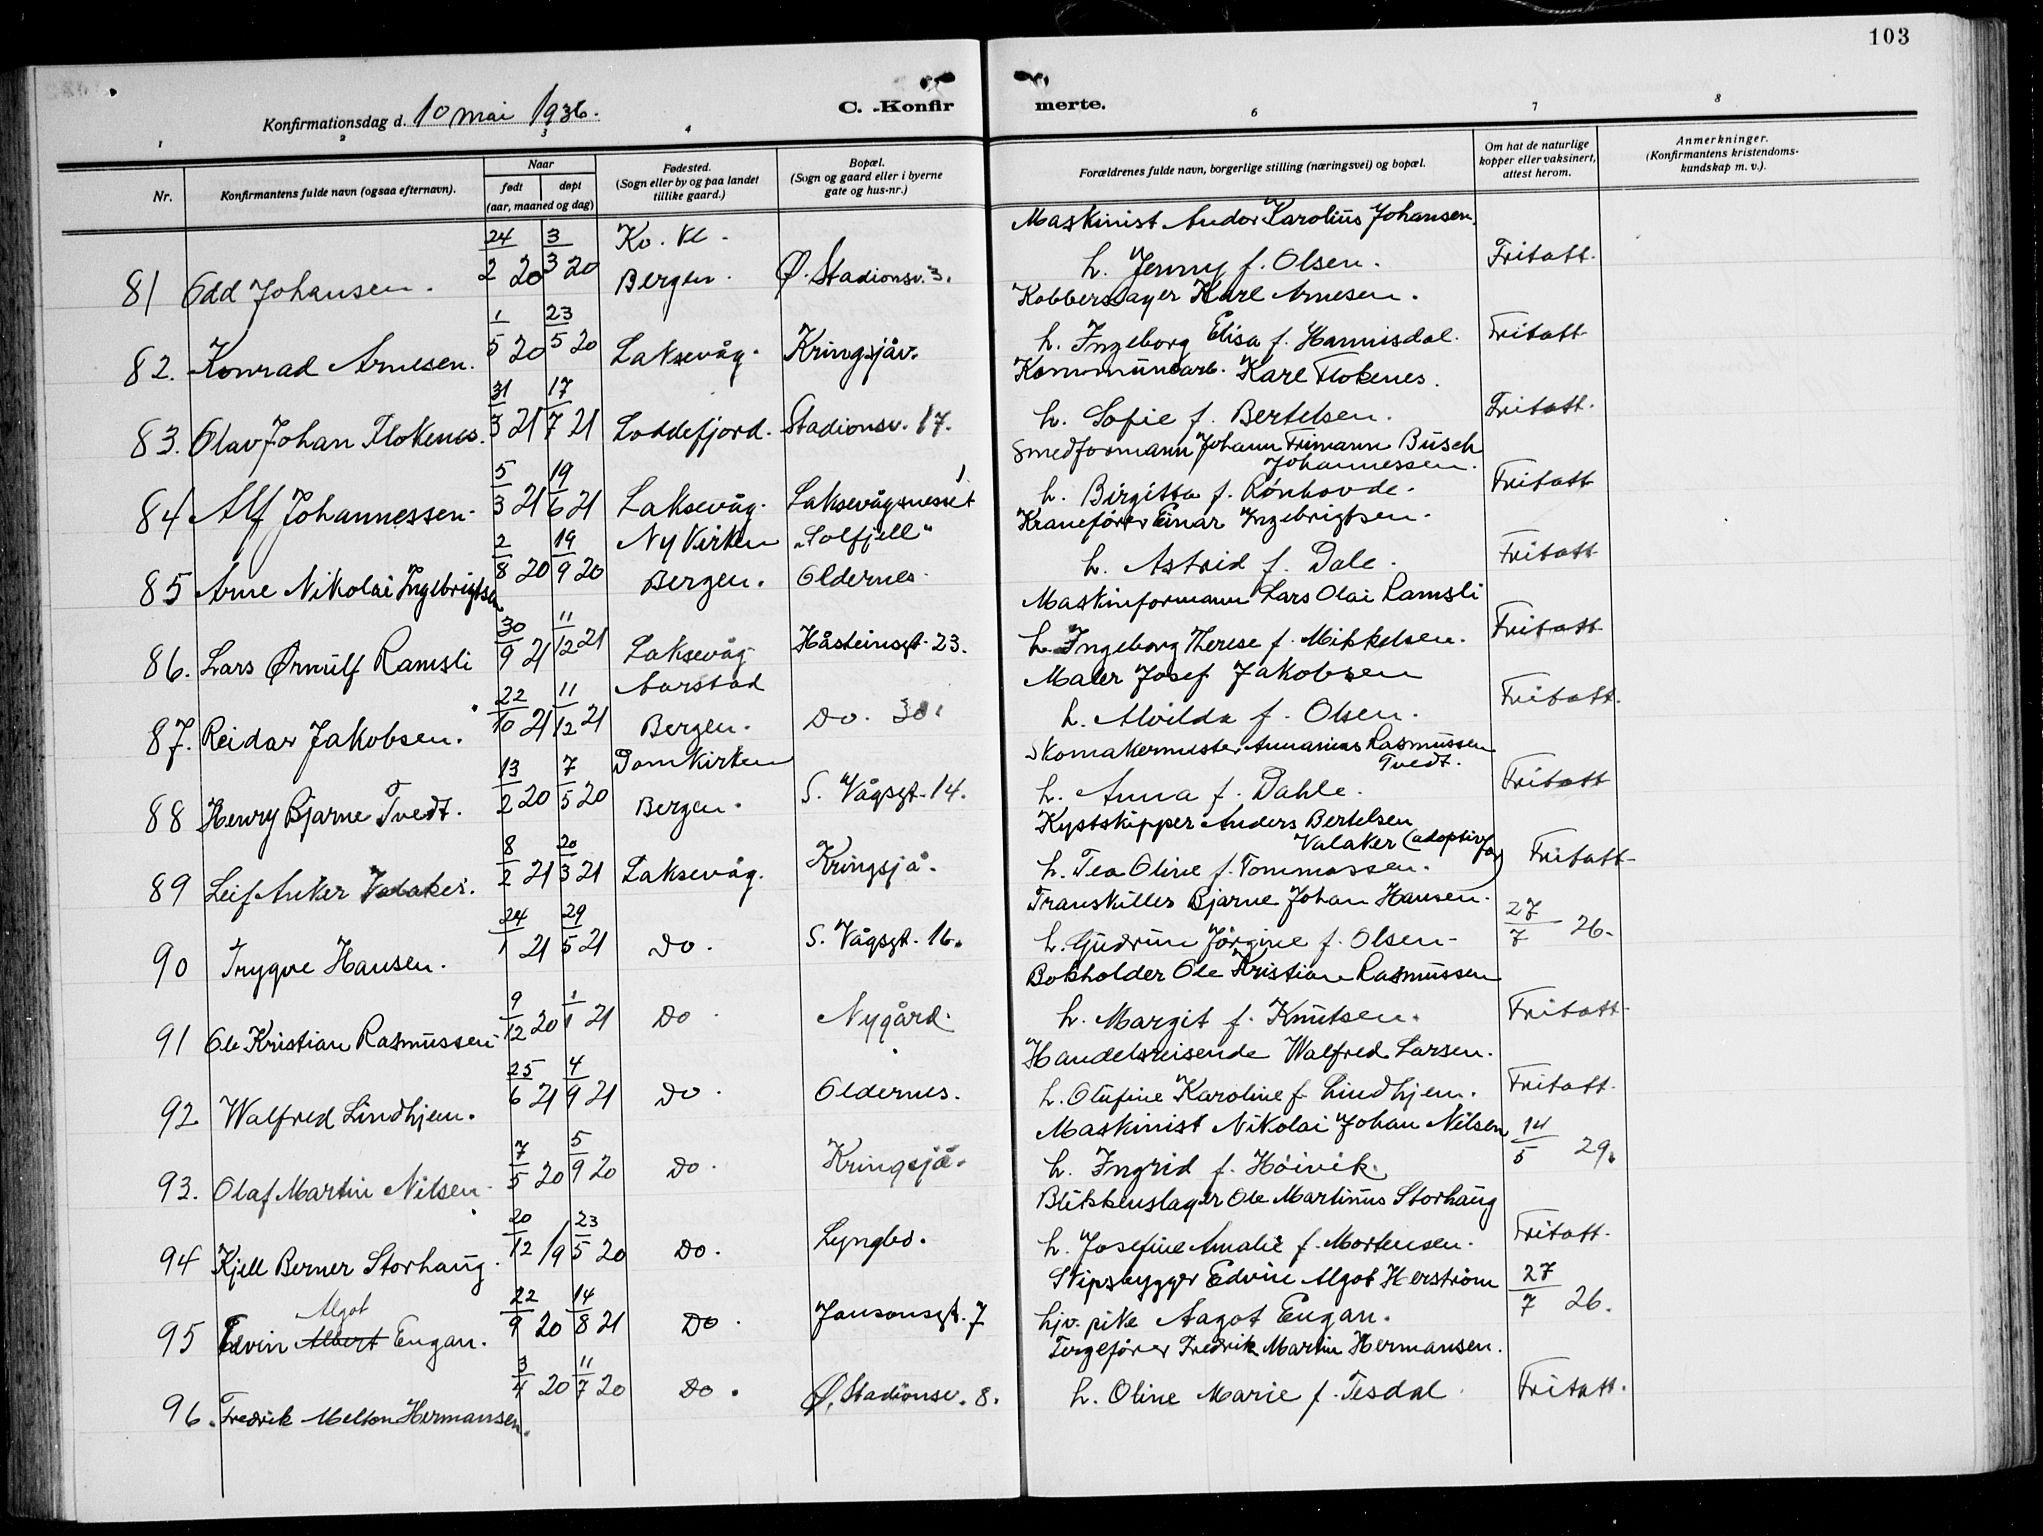 103
Konfirmationsdag d. 10 mai 1936.
C. -Konfir
merte.
1 2 3 4 6 7 8
Nr.
Konfirmantens fulde navn (ogsaa efternavn).
Naar
født døpt
(aar, maaned og dag)
Fødested.
(Sogn eller by og paa landet
tillike gaard.)
Bopæl.
(Sogn og gaard eller i byerne
gate og hus-nr.)
Forældrenes fulde navn, borgerlige stilling (næringsvei) og bopæl.
Om hat de naturlige
kopper eller vaksinert,
attest herom.
Anmerkninger.
(Konfirmantens kristendoms-
kundskap m. v.).
Maskinist Andor Karolius Johansen.
81 Odd Johansen. 24/2 20 3/3 20 Ko. Kl. Bergen. Ø. Stadionsv. 3. h. Jenny f. Olsen. Fritatt.
Kobberslager Karl Arnesen.
82. Konrad Arnesen. 1/5 20 23/5 20 Laksevåg. Kringsjåv. h. Ingeborg Elisa f. Hannisdal. Fritatt
Kommunearb. Karl Flokenes.
83. Olav Johan Flokenes. 31/3 21 17/7 21 Loddefjord. Stadionsv. 17. h. Sofie f. Bertelsen. Fritatt.
Smedformann Johann Frimann Busch
Johannessen.
84 Alf Johannessen. 5/3 21 19/6 21 Laksevåg. Laksevågsnesset 1 h. Birgitta f. Rönhovde. Fritatt
Kranefører Einar Ingebrigtsen.
85 Arne Nikolai Ingebrigtsen 2/8 20 19/9 20 Nykirken Bergen. "Solfjell" Oldernes. h. Astrid f. Dale. Fritatt
Maskinformann Lars Olai Ramsli
86. Lars Ørnulf Ramsli 30/9 21 11/12 21 Laksevåg Håsteinsgt. 23. h. Ingeborg Therese f. Mikkelsen. Fritatt
Maler Josef Jakobsen
87. Reidar Jakobsen. 22/10 21 11/12 21 Aarstad Bergen. Do. 30. h. Alvilda f. Olsen. Fritatt.
Skomakermester Annanias Rasmussen
Tvedt.
88 Henry Bjarne Tvedt. 13/2 20 7/5 20 Domkirken Bergen. S. Vågsgt. 14. h. Anna f. Dahle. Fritatt
Kystskipper Anders Bertelsen
Valaker (adoptivfar)
89 Leif Anker Valaker. 8/2 21 20/3 21 Laksevåg. Kringsjå. h. Tea Oline f. Tommassen. Fritatt
Transkiller Bjarne Johan Hansen.
90 Trygve Hansen. 24/1 21 29/5 21 Do. S. Vågsgt. 16. h. Gudrun Jørgine f. Olsen. 27/7 26.
Bokholder Ole Kristian Rasmussen
91 Ole Kristian Rasmussen 9/12 20 1/1 21 Do. Nygård. h. Margit f. Knutsen. Fritatt.
Handelsreisende Walfred Larsen.
92 Walfred Lindhjem. 25/6 21 4/9 21 Do. Oldernes. h. Olufine Karoline f. Lindhjem. Fritatt.
Maskinist Nikolai Johan Nilsen
93. Olaf Martin Nilsen. 7/5 20 5/9 20 Do. Kringsjå. h. Ingrid f. Höivik. 14/5 29.
Blikkenslager Ole Martinus Storhaug
94 Kjell Berner Storhaug. 20/12 19 23/5 20 Do. Lyngbo. h. Josefine Amalie f. Mortensen. Fritatt.
Skipsbygger Edvin Algot Herström
95 Edvin Albert Algot Engan. 22/9 20 14/8 21 Do. Jansonsgt. 7 hjv. pike Aagot Engan. 27/7 26.
Fergefører Fredrik Martin Hermansen.
96. Fredrik Melton Hermansen. 3/4 20 11/7 20 Do. Ø. Stadionsv. 8. h. Oline Marie f. Tesdal. Fritatt.